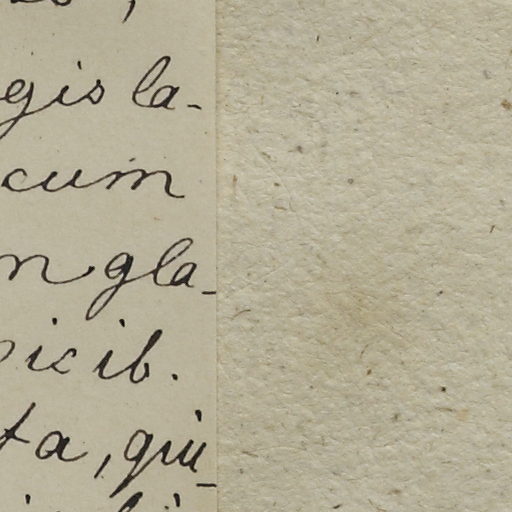 gis la-
cum
n gla-
icib.
ta, qui-